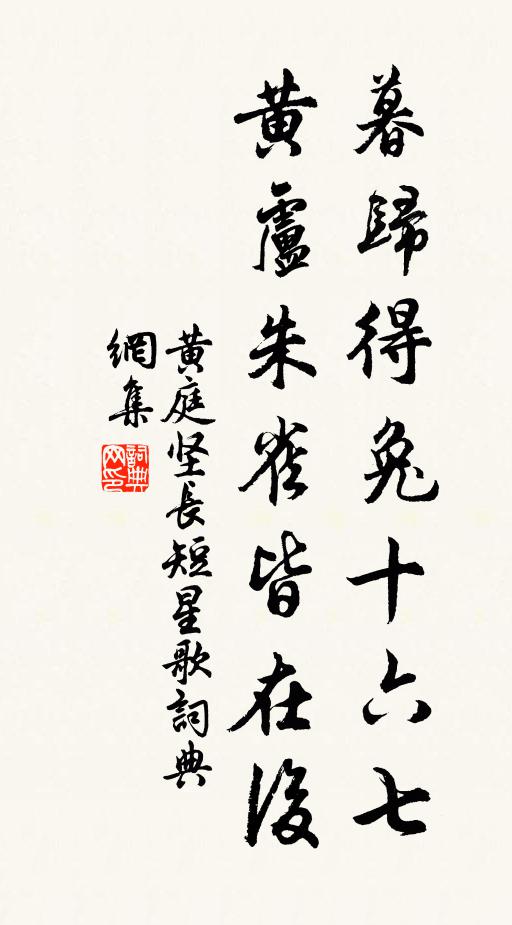 暮歸得兔十六七
黄盧朱雀皆在後
黄庭坚長短星歌詞典
網集
詞典網印